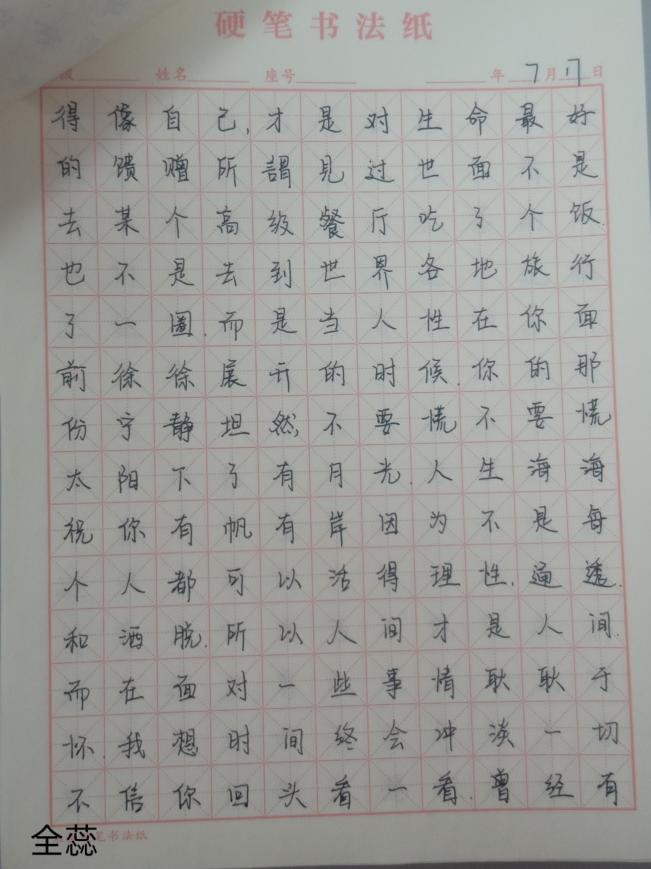 硬笔书法纸
级 姓名 座号 年 7 月 17 日
得像自己,才是对生命最好
的馈赠所謂见过世面不是
去某个高级餐厅吃了个饭.
也不是去到世界各地旅行
了一圈.而是当人性在你面
前徐徐展开的时候.你的那
份宁静坦然,不要慌不要慌
太阳下了有月光.人生海海
祝你有帆有岸因为不是每
个人都可以活得理性,通透.
和洒脱.所以人间才是人间.
而在面对一些事情耿耿于
怀.我想时间终会冲淡一切
不信你回头看一看.曾经有
笔书法纸
全蕊